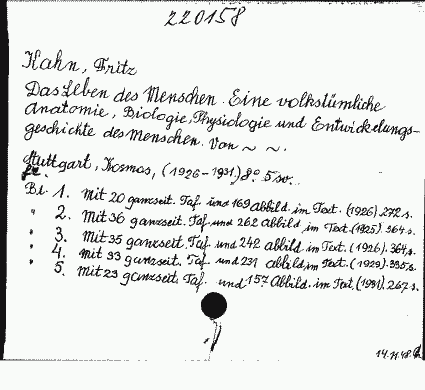 220158
Kahn, Fritz
Das Leben des Menschen. Eine volkstümliche
Anatomie, Biologie, Physiologie und Entwickelungs-
geschichte des Menschen. Von ~ ~.
Stuttgart, Kosmos, (1926-1931.) 8º. 5 sv.
Bd. 1. Mit 20 ganzseit. Taf. und 169 Abbild. im Text. (1926). 272 s.
" 2. Mit 36 ganzseit. Taf. und 262 Abbild. im Text. (1925). 364 s.
" 3. Mit 35 ganzseit. Taf. und 242 Abbild. im Text. (1926). 364 s.
" 4. Mit 33 ganzseit. Taf. und 231 Abbild. im Text. (1929). 335 s.
" 5. Mit 23 ganzseit. Taf. und 157 Abbild. im Text. (1931). 267 s.
14.11.48.